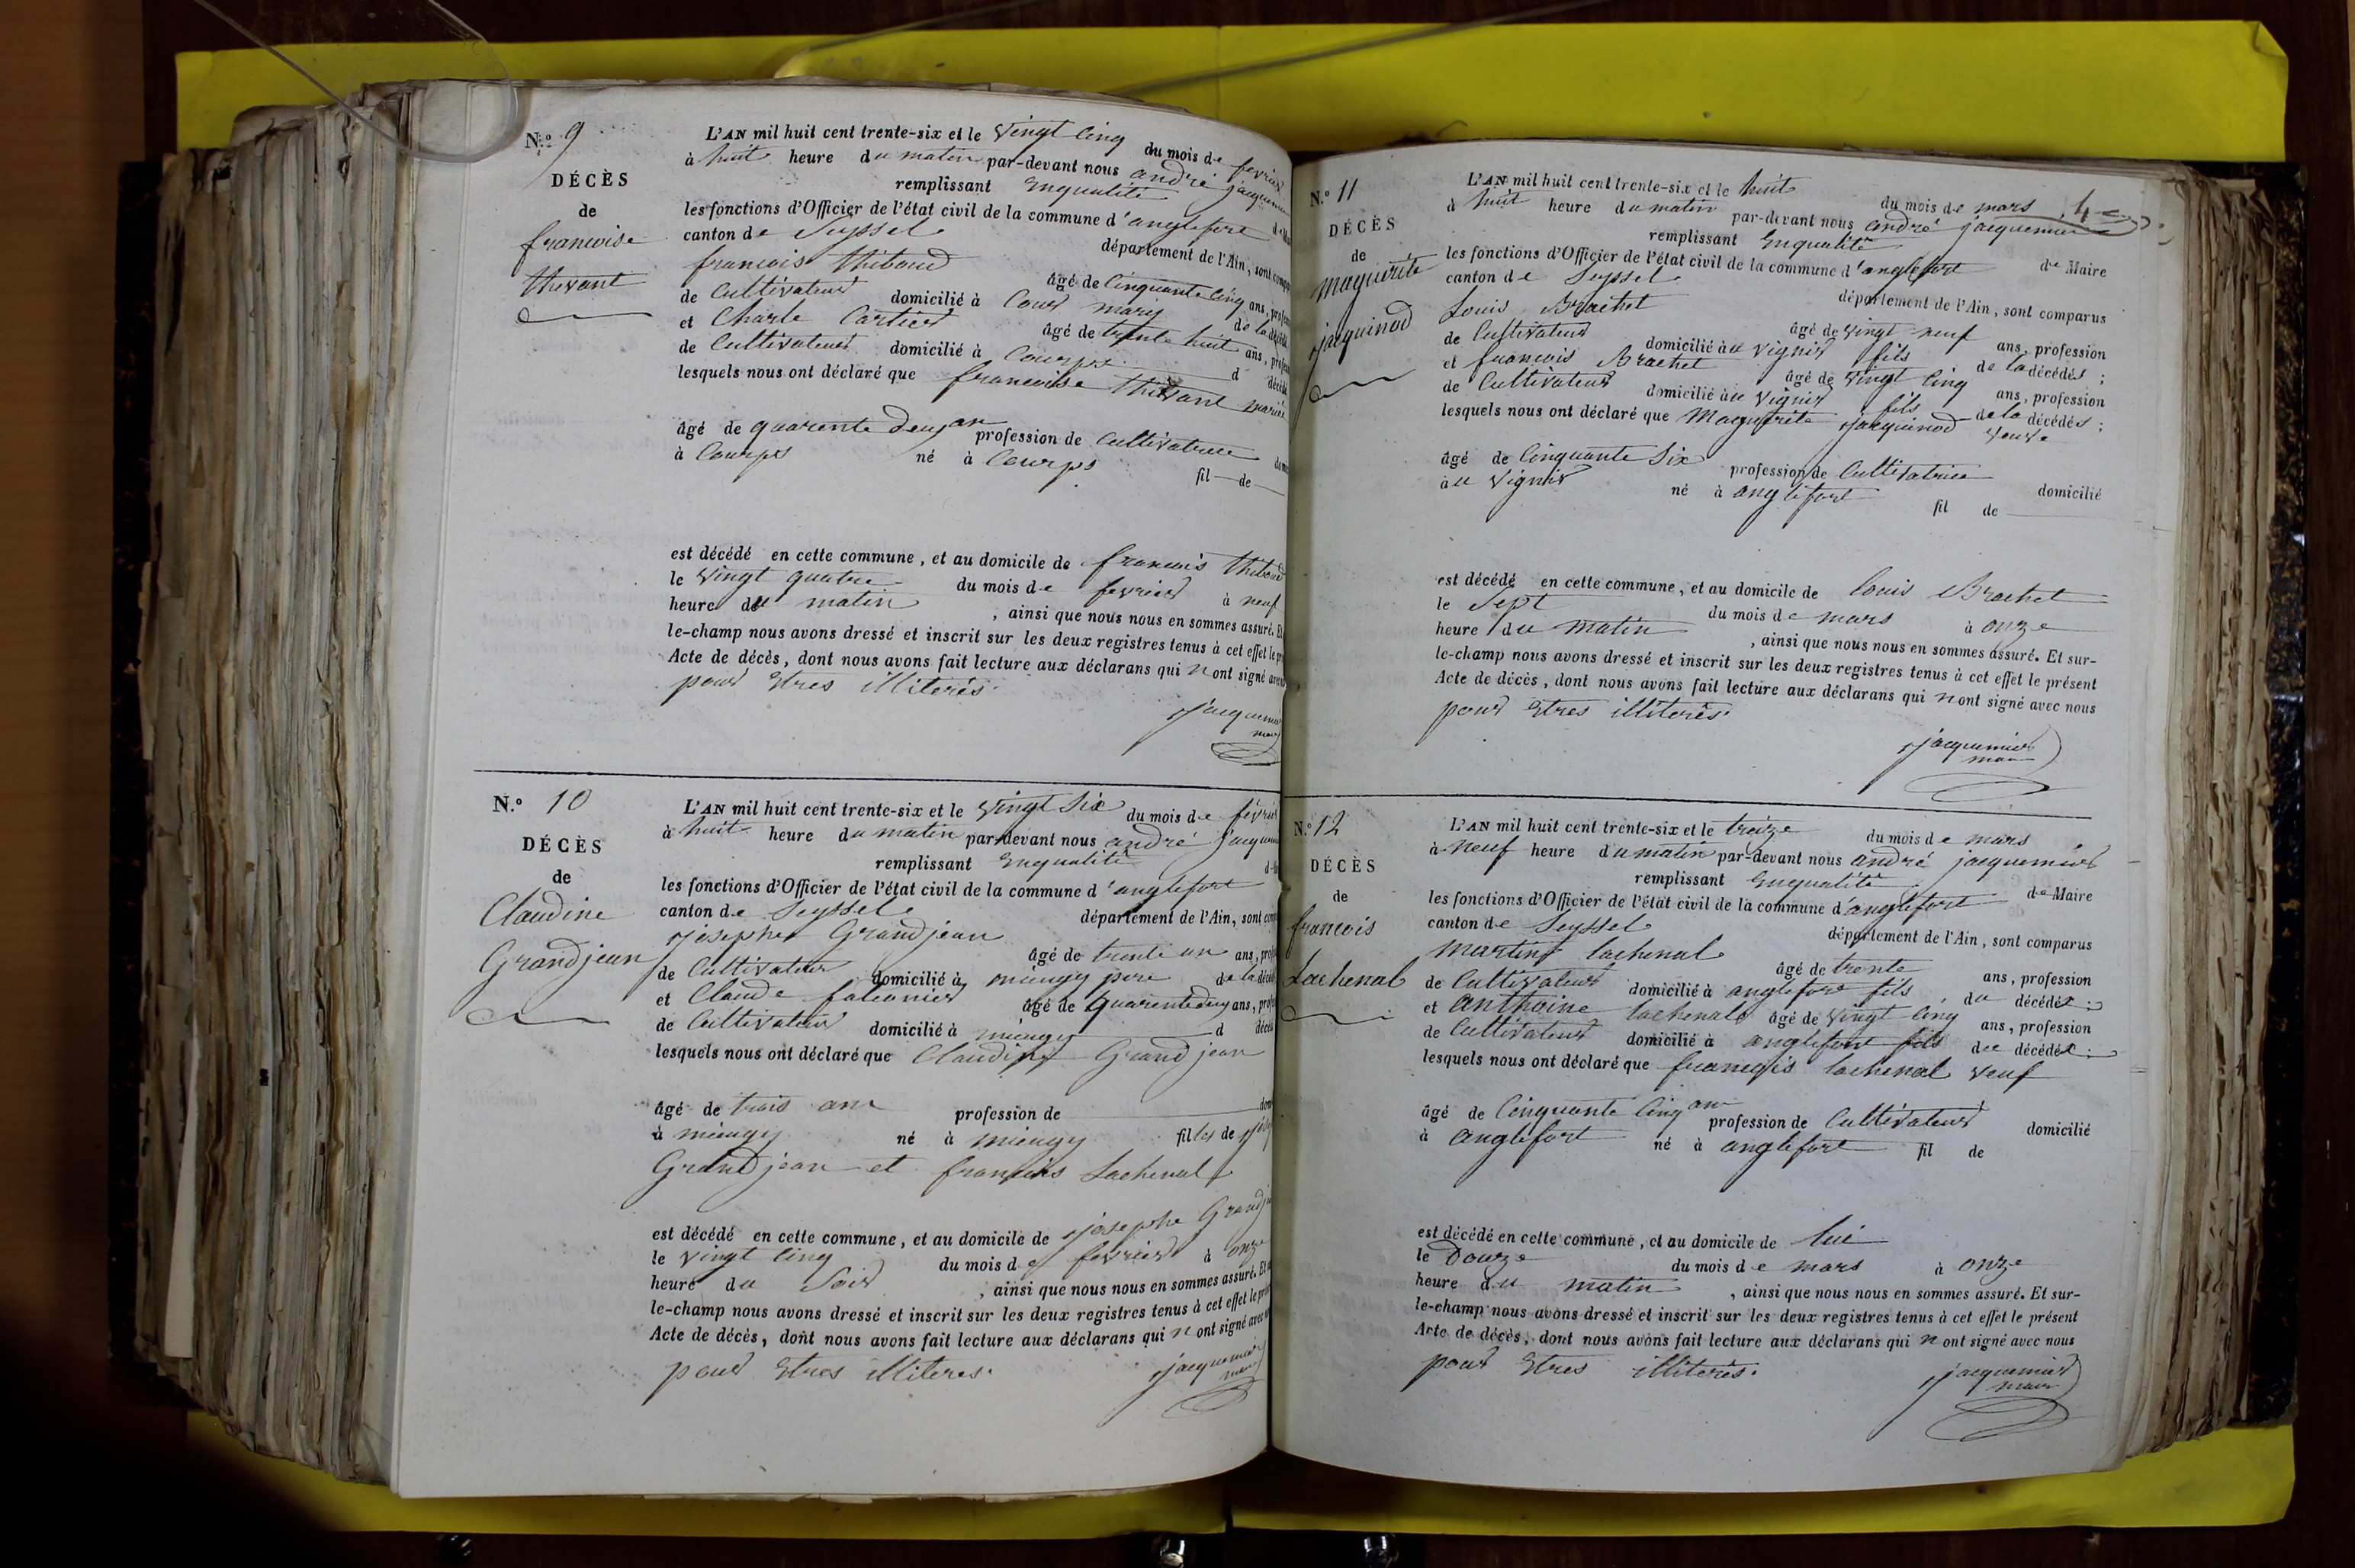 N.º 9
DÉCÈS
de
francoise
thevant
L'AN mil huit cent trente-six et le vingt cinq du mois de fevrier
à huit heure du matin par-devant nous andré jacquemier
remplissant Enqualité de
les fonctions d'Officier de l'état civil de la commune d'anglefort
canton de Seyssel département de l'Ain, sont
francois thiboud âgé de cinquante cinq ans,
de cultivateur domicilié à Cour mary de la
et Charle Cartier âgé de trente huit ans,
de cultivateur domicilié à Courps d
lesquels nous ont déclaré que francoise thevant mariée
âgé de quarente deux an profession de cultivatrice
à Courps né à Courps fil de
est décédé en cette commune, et au domicile de francois thiboud
le vingt quatre du mois de fevrier à neuf
heure du matin, ainsi que nous nous en sommes assuré.
le-champ nous avons dressé et inscrit sur les deux registres tenus à cet effet le
Acte de décès, dont nous avons fait lecture aux déclarans qui n ont signé
pour Etres illiterés.
jacquemier
N.º 10
DÉCÈS
de
Claudine
Grandjean
L'AN mil huit cent trente-six et le vingt six du mois de
à huit heure du matin par-devant nous andré
remplissant Enqualité
les fonctions d'Officier de l'état civil de la commune d'anglefort
canton de Seyssel département de l'Ain, sont
josephe Grandjean âgé de trente un ans,
de Cultivateur domicilié à mieugy pere de la
et Claude falconier âgé de quarente deux ans,
de Cultivateur domicilié à mieugy d
lesquels nous ont déclaré que Claudine Grand jean
âgé de trois ans profession de
à mieugy né à mieugy filles de
Grand jean et françois Lachenal
est décédé en cette commune, et au domicile de josephe
le vingt cinq du mois de fevrier à onze
heure du Soir, ainsi que nous nous en sommes assuré.
le-champ nous avons dressé et inscrit sur les deux registres tenus à cet effet le
Acte de décès, dont nous avons fait lecture aux déclarans qui n ont signé
pour Etres illiteres.
jacquemier
N.º 11
DÉCÈS
de
maguerite
jacquinod
L'AN mil huit cent trente-six et le huit du mois de mars
à huit heure du matin par-devant nous andré jacquemier
remplissant Enqualité de Maire
les fonctions d'Officier de l'état civil de la commune d'anglefort
canton de Seyssel département de l'Ain, sont comparus
Louis Brachet âgé de vingt neuf ans, profession
de Cultivateur domicilié au vignir fils de la décédés;
et francois Brachet âgé de vingt cinq ans, profession
de Cultivateur domicilié au vignir fils de la décédés;
lesquels nous ont déclaré que Maguerite jacquinod veuve
âgé de Cinquante Six profession de Cultivatrice domicilié
à u vignir né à anglefort fil de
est décédé en cette commune, et au domicile de louis Brachet
le Sept du mois de mars à onze
heure du matin, ainsi que nous nous en sommes assuré. Et sur-
le-champ nous avons dressé et inscrit sur les deux registres tenus à cet effet le présent
Acte de décès, dont nous avons fait lecture aux déclarans qui n ont signé avec nous
pour Etres illiterés.
jacquemier
maire
N.º 12
DÉCÈS
de
francois
Lachenal
L'AN mil huit cent trente-six et le treize du mois de mars
à neuf heure du matin par-devant nous andré jacquemier
remplissant Enqualité de Maire
les fonctions d'Officier de l'état civil de la commune d'anglefort
canton de Seyssel département de l'Ain, sont comparus
Martin lachenal âgé de trente ans, profession
de Cultivateur domicilié à anglefort fils du décédés;
et anthoine lachenal âgé de vingt cinq ans, profession
de Cultivateur domicilié à anglefort fils du décédé;
lesquels nous ont déclaré que francois lachenal veuf
âgé de Cinquante Cinq ans profession de Cultivateur domicilié
à anglefort né à anglefort fil de
est décédé en cette commune, et au domicile de lui
le Douze du mois de mars à onze
heure du matin, ainsi que nous nous en sommes assuré. Et sur-
le-champ nous avons dressé et inscrit sur les deux registres tenus à cet effet le présent
Acte de décès, dont nous avons fait lecture aux déclarans qui n ont signé avec nous
pour Etres illiterés.
jacquemier
maire